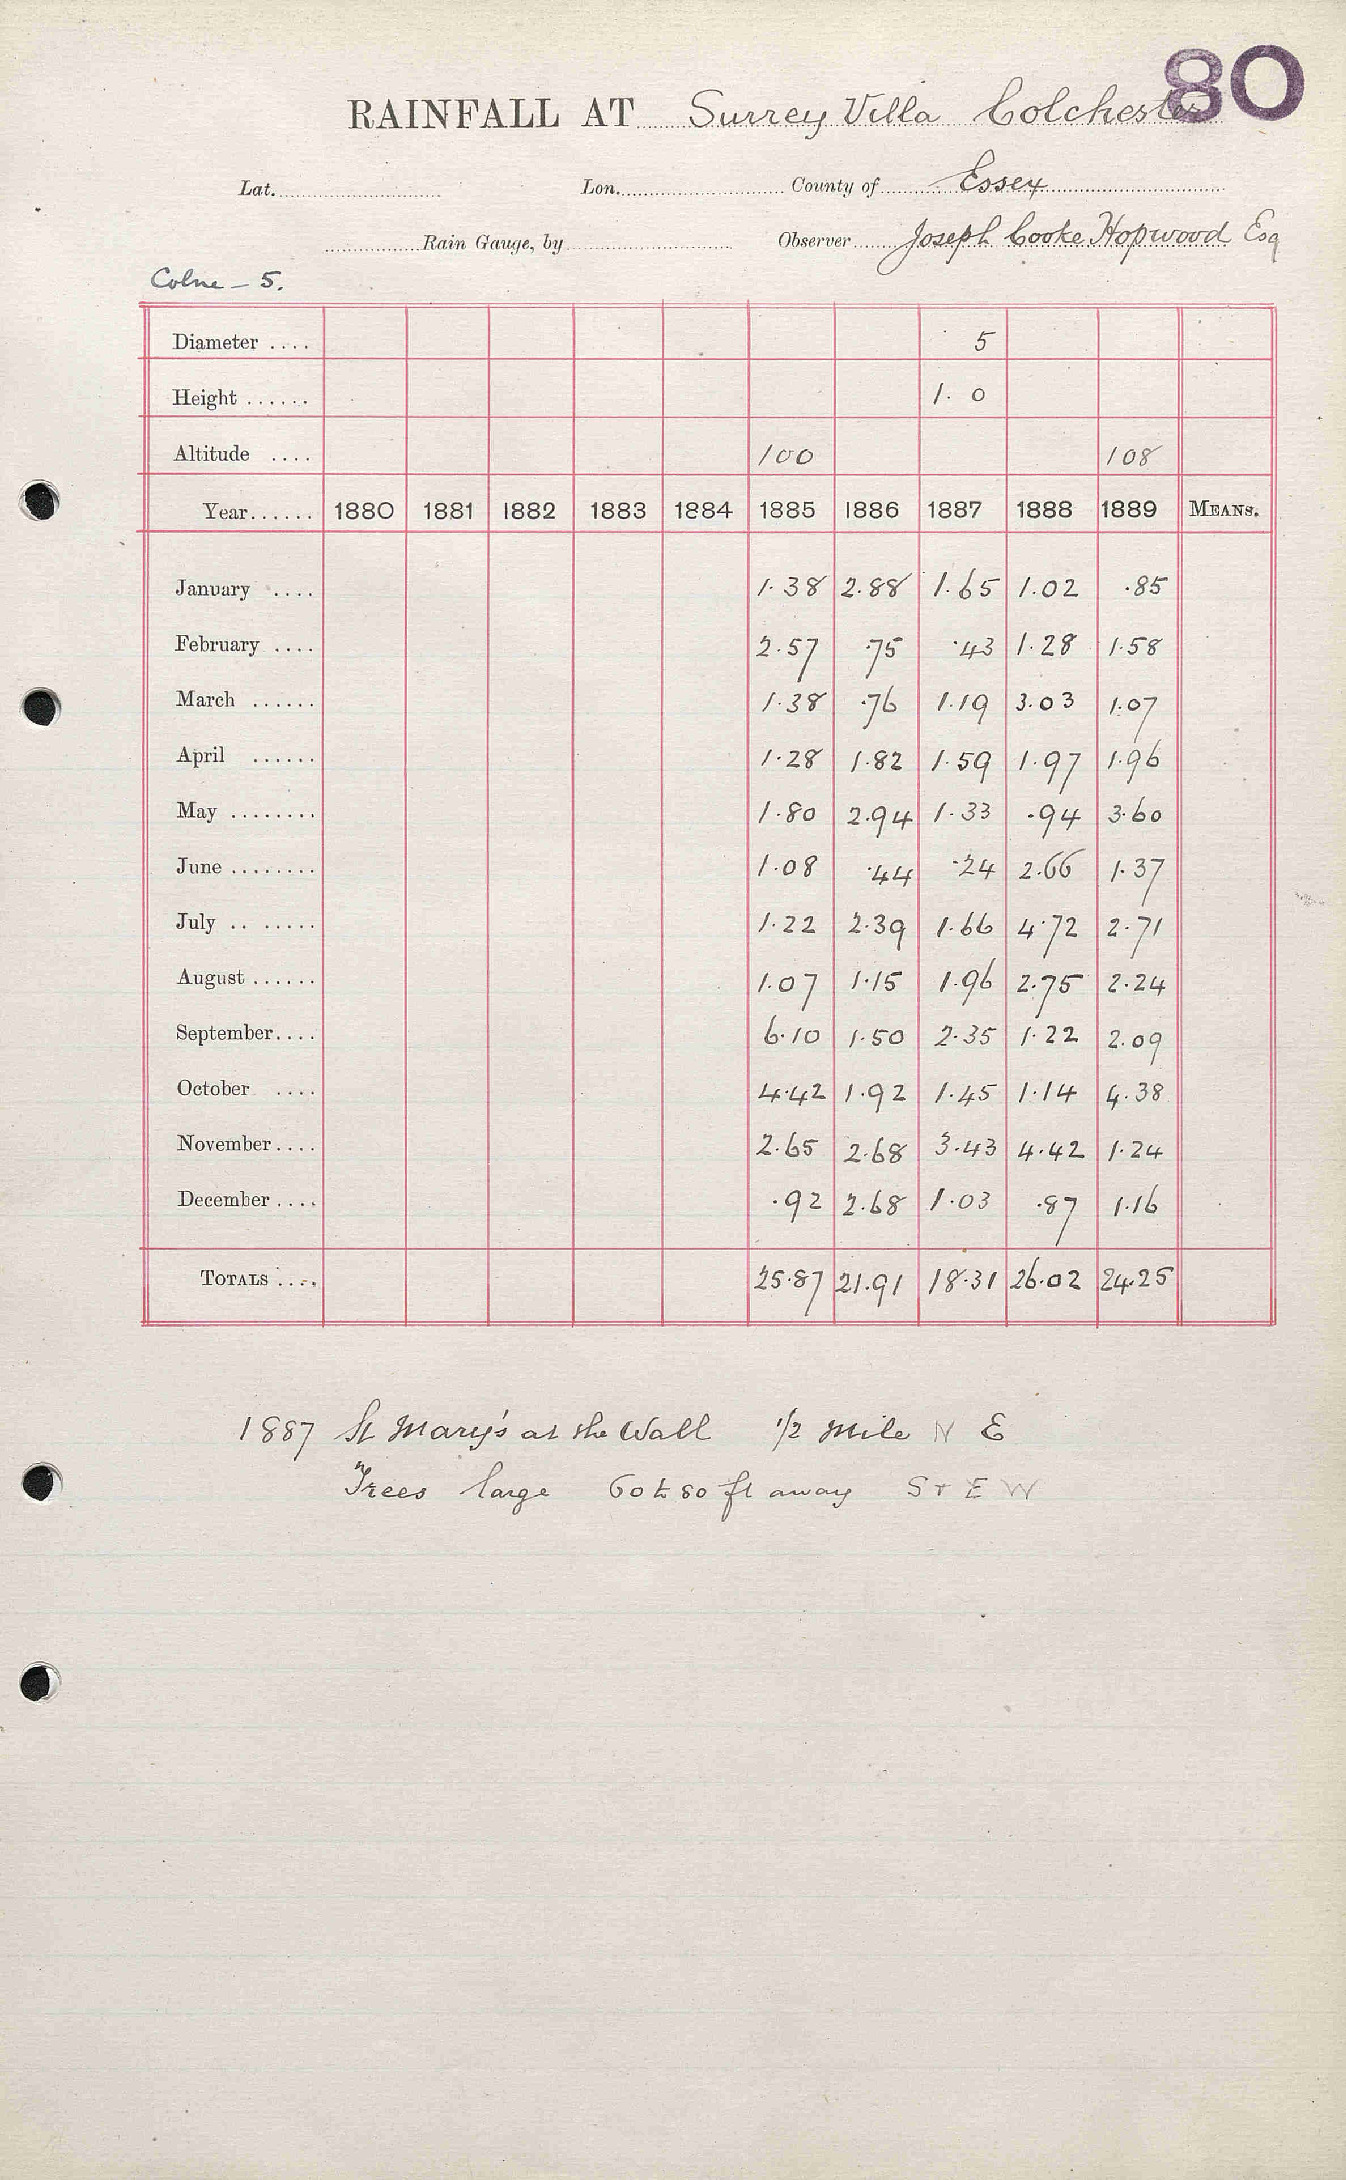 80
RAINFALL AT Surrey Villa Colchester
Lat. Lon. County of Essex
Rain Gauge, by Observer Joseph Cooke Hopwood Esq
Colne - 5.
Diameter .... 5
Height ...... 1. 0
Altitude .... 100 108
Year...... 1880 1881 1882 1883 1884 1885 1886 1887 1888 1889 MEANS.
January .... 1.38 2.88 1.65 1.02 .85
February .... 2.57 .75 .43 1.28 1.58
March ...... 1.38 .76 1.19 3.03 1.07
April ...... 1.28 1.82 1.59 1.97 1.96
May ........ 1.80 2.94 1.33 .94 3.60
June ........ 1.08 .44 .24 2.66 1.37
July .. ..... 1.22 2.39 1.66 4.72 2.71
August ...... 1.07 1.15 1.96 2.75 2.24
September.... 6.10 1.50 2.35 1.22 2.09
October .... 4.42 1.92 1.45 1.14 4.38
November.... 2.65 2.68 3.43 4.42 1.24
December.... .92 2.68 1.03 .87 1.16
TOTALS .... 25.87 21.91 18.31 26.02 24.25
1887 St Mary's at the Wall 1/2 Mile N E
Trees large 60 to 80 ft away S + E W